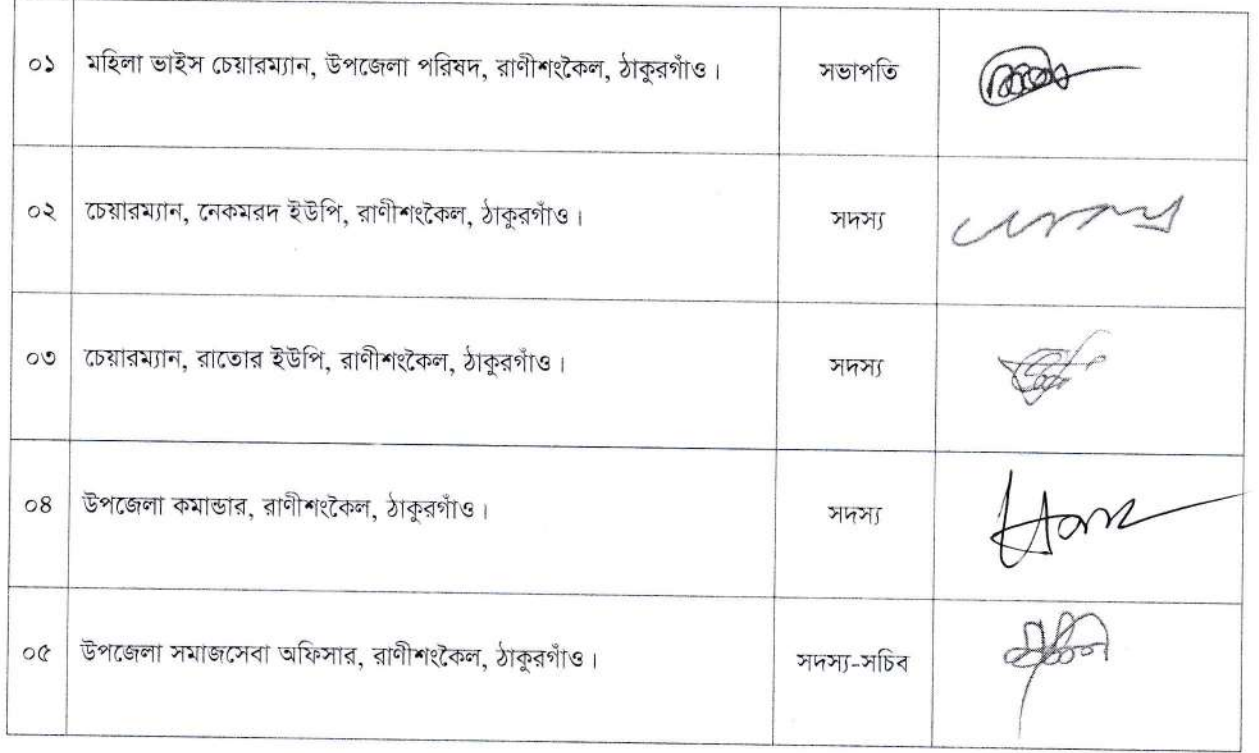 ০১ মহিলা ভাইস চেয়ারম্যান, উপজেলা পরিষদ, রাণীশংকৈল, ঠাকুরগাঁও। সভাপতি
০২ চেয়ারম্যান, নেকমরদ ইউপি, রাণীশংকৈল, ঠাকুরগাঁও। সদস্য
০৩ চেয়ারম্যান, রাতোর ইউপি, রাণীশংকৈল, ঠাকুরগাঁও। সদস্য
০৪ উপজেলা কমান্ডার, রাণীশংকৈল, ঠাকুরগাঁও। সদস্য
০৫ উপজেলা সমাজসেবা অফিসার, রাণীশংকৈল, ঠাকুরগাঁও। সদস্য-সচিব